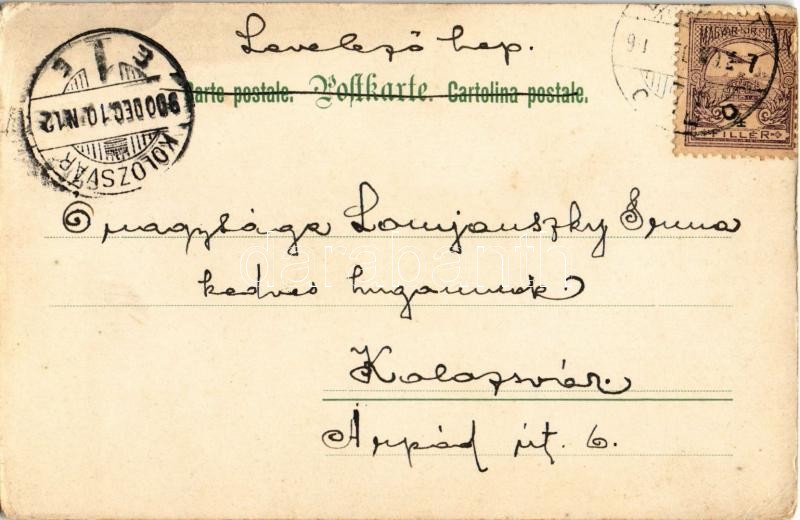 Levelező lap.
Carte postale. Postkarte. Cartolina postale.
MAGYAR KIR. POSTA
FILLÉR
900 DEC. 10. N12
KOLOZSVÁR
Ő nagysága Lomjanszky Irma
kedves hugamnak.
Kolozsvár.
Árpád út. 6.
darabanth